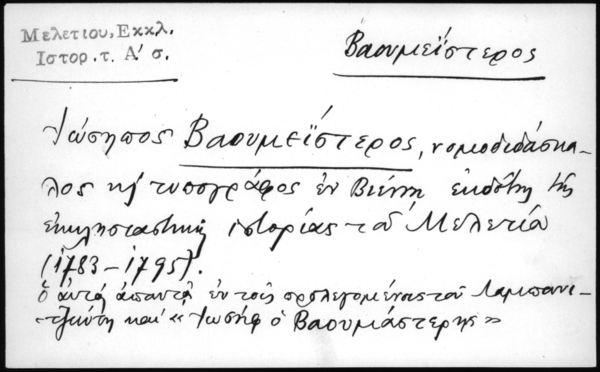 Μελετίου, Εκκλ.
Ιστορ. τ. Α' σ.
Βαουμεΐστερος
Ἰώσηπος Βαουμεΐστερος, νομοδιδάσκα-
λος κὴ τυπογράφος ἐν Βιέννῃ ἐκδότης τῆς
ἐκκλησιαστικῆς ἱστορίας τοῦ Μελετίου
(1783-1795).
ὁ αὐτὸς ἀπαντᾷ ἐν τοῖς προλεγομένοις τοῦ Λαμπανι-
τζιώτη καὶ « Ἰωσὴφ ὁ Βαουμάστερης »